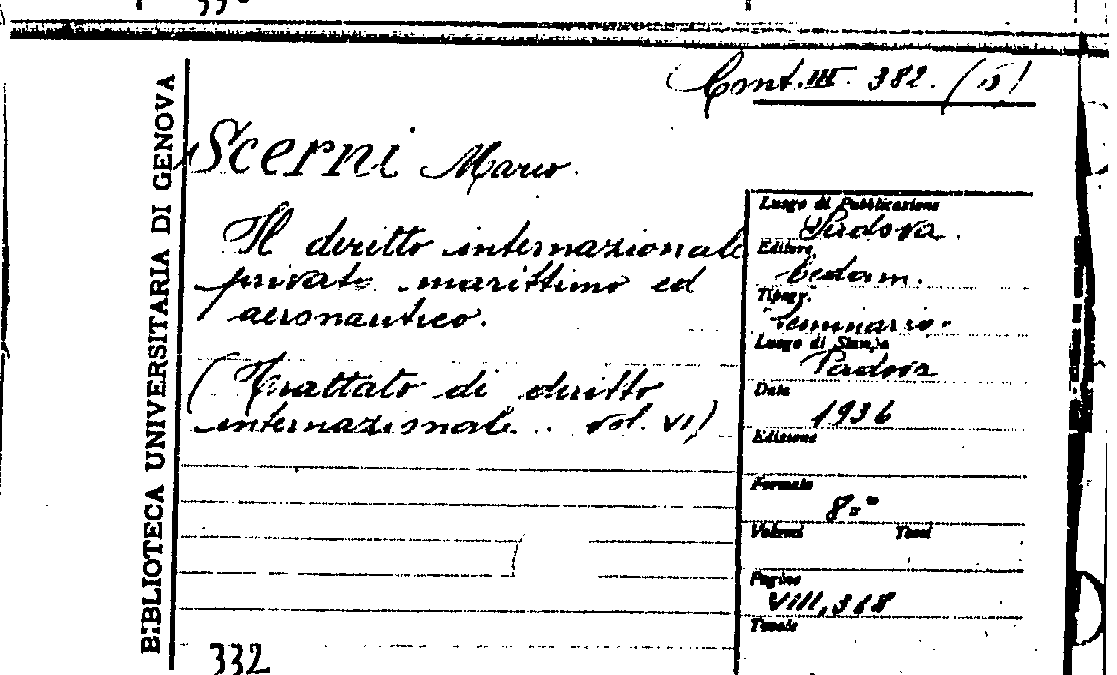 BIBLIOTECA UNIVERSITARIA DI GENOVA
Cont. III 382. (5)
Scerni Mario
Il diritto internazionale
privato marittimo ed
aeronautico.
(Trattato di diritto
internazionale .. vol. VI)
332
Luogo di Pubblicazione
Padova.
Editore
Cedam.
Tipogr.
Seminario.
Luogo di Stampa
Padova
Data
1936
Edizione
Formato
8.°
Volumi Tomi
Pagine
VIII, 368
Tavole